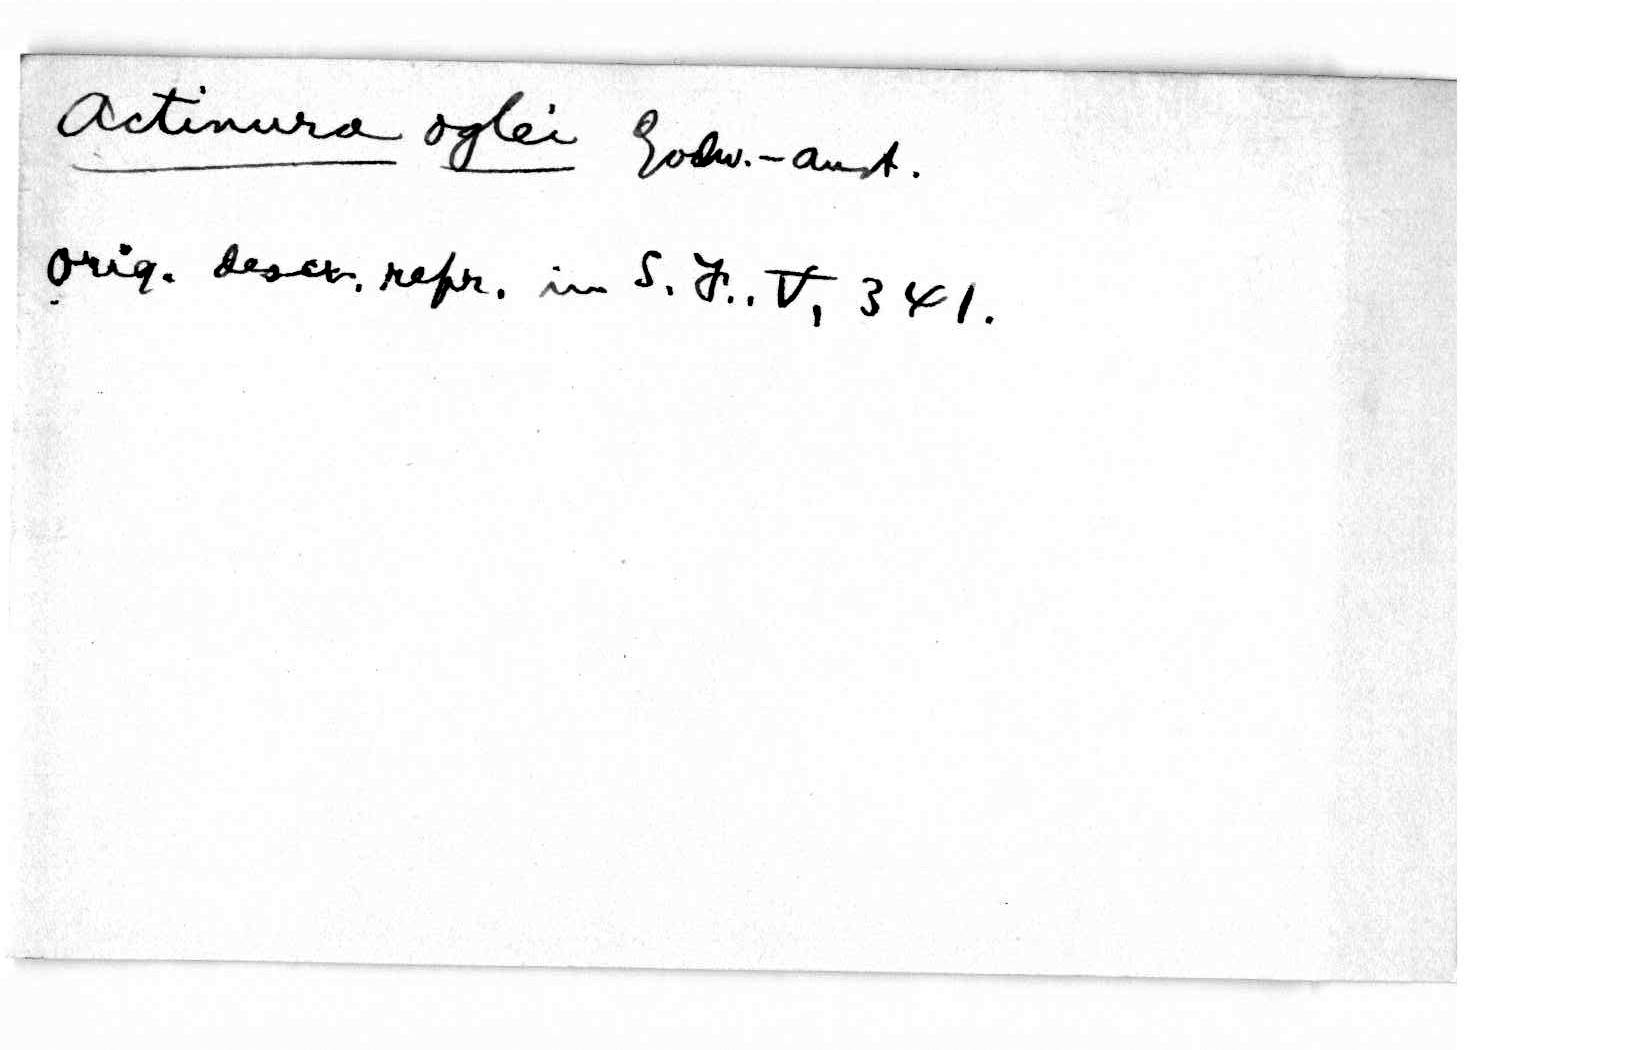 Actinura oglei Godw.-Aust.
Orig. descr. repr. in S. F., V, 341.